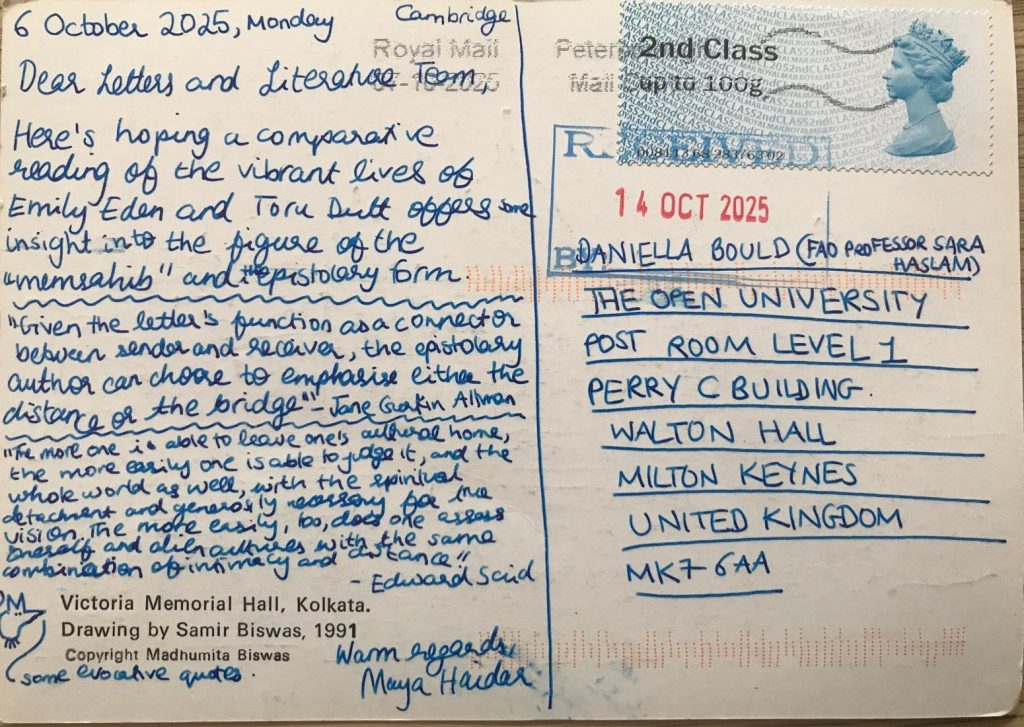 6 October 2025, Monday
Cambridge
Dear Letters and Literature Team,
Here's hoping a comparative
reading of the vibrant lives of
Emily Eden and Toru Dutt offers some
insight into the figure of the
"memsahib" and the epistolary form.
"Given the letter's function as a connector
between sender and receiver, the epistolary
author can choose to emphasise either the
distance or the bridge" - Jane Gurkin Altman
"The more one is able to leave one's cultural home,
the more easily one is able to judge it, and the
whole world as well, with the spiritual
detachment and generosity necessary for true
vision. The more easily, too, does one assess
oneself and alien cultures with the same
combination of intimacy and distance."
- Edward Said
Victoria Memorial Hall, Kolkata.
Drawing by Samir Biswas, 1991
Copyright Madhumita Biswas
some evocative quotes.
Warm regards,
Maya Haidar
Royal Mail
-10-2025
Mail
2nd Class
up to 100g
RECEIVED
14 OCT 2025
BY:
DANIELLA BOULD (FAO PROFESSOR SARA
HASLAM)
THE OPEN UNIVERSITY
POST ROOM LEVEL 1
PERRY C BUILDING
WALTON HALL
MILTON KEYNES
UNITED KINGDOM
MK7 6AA